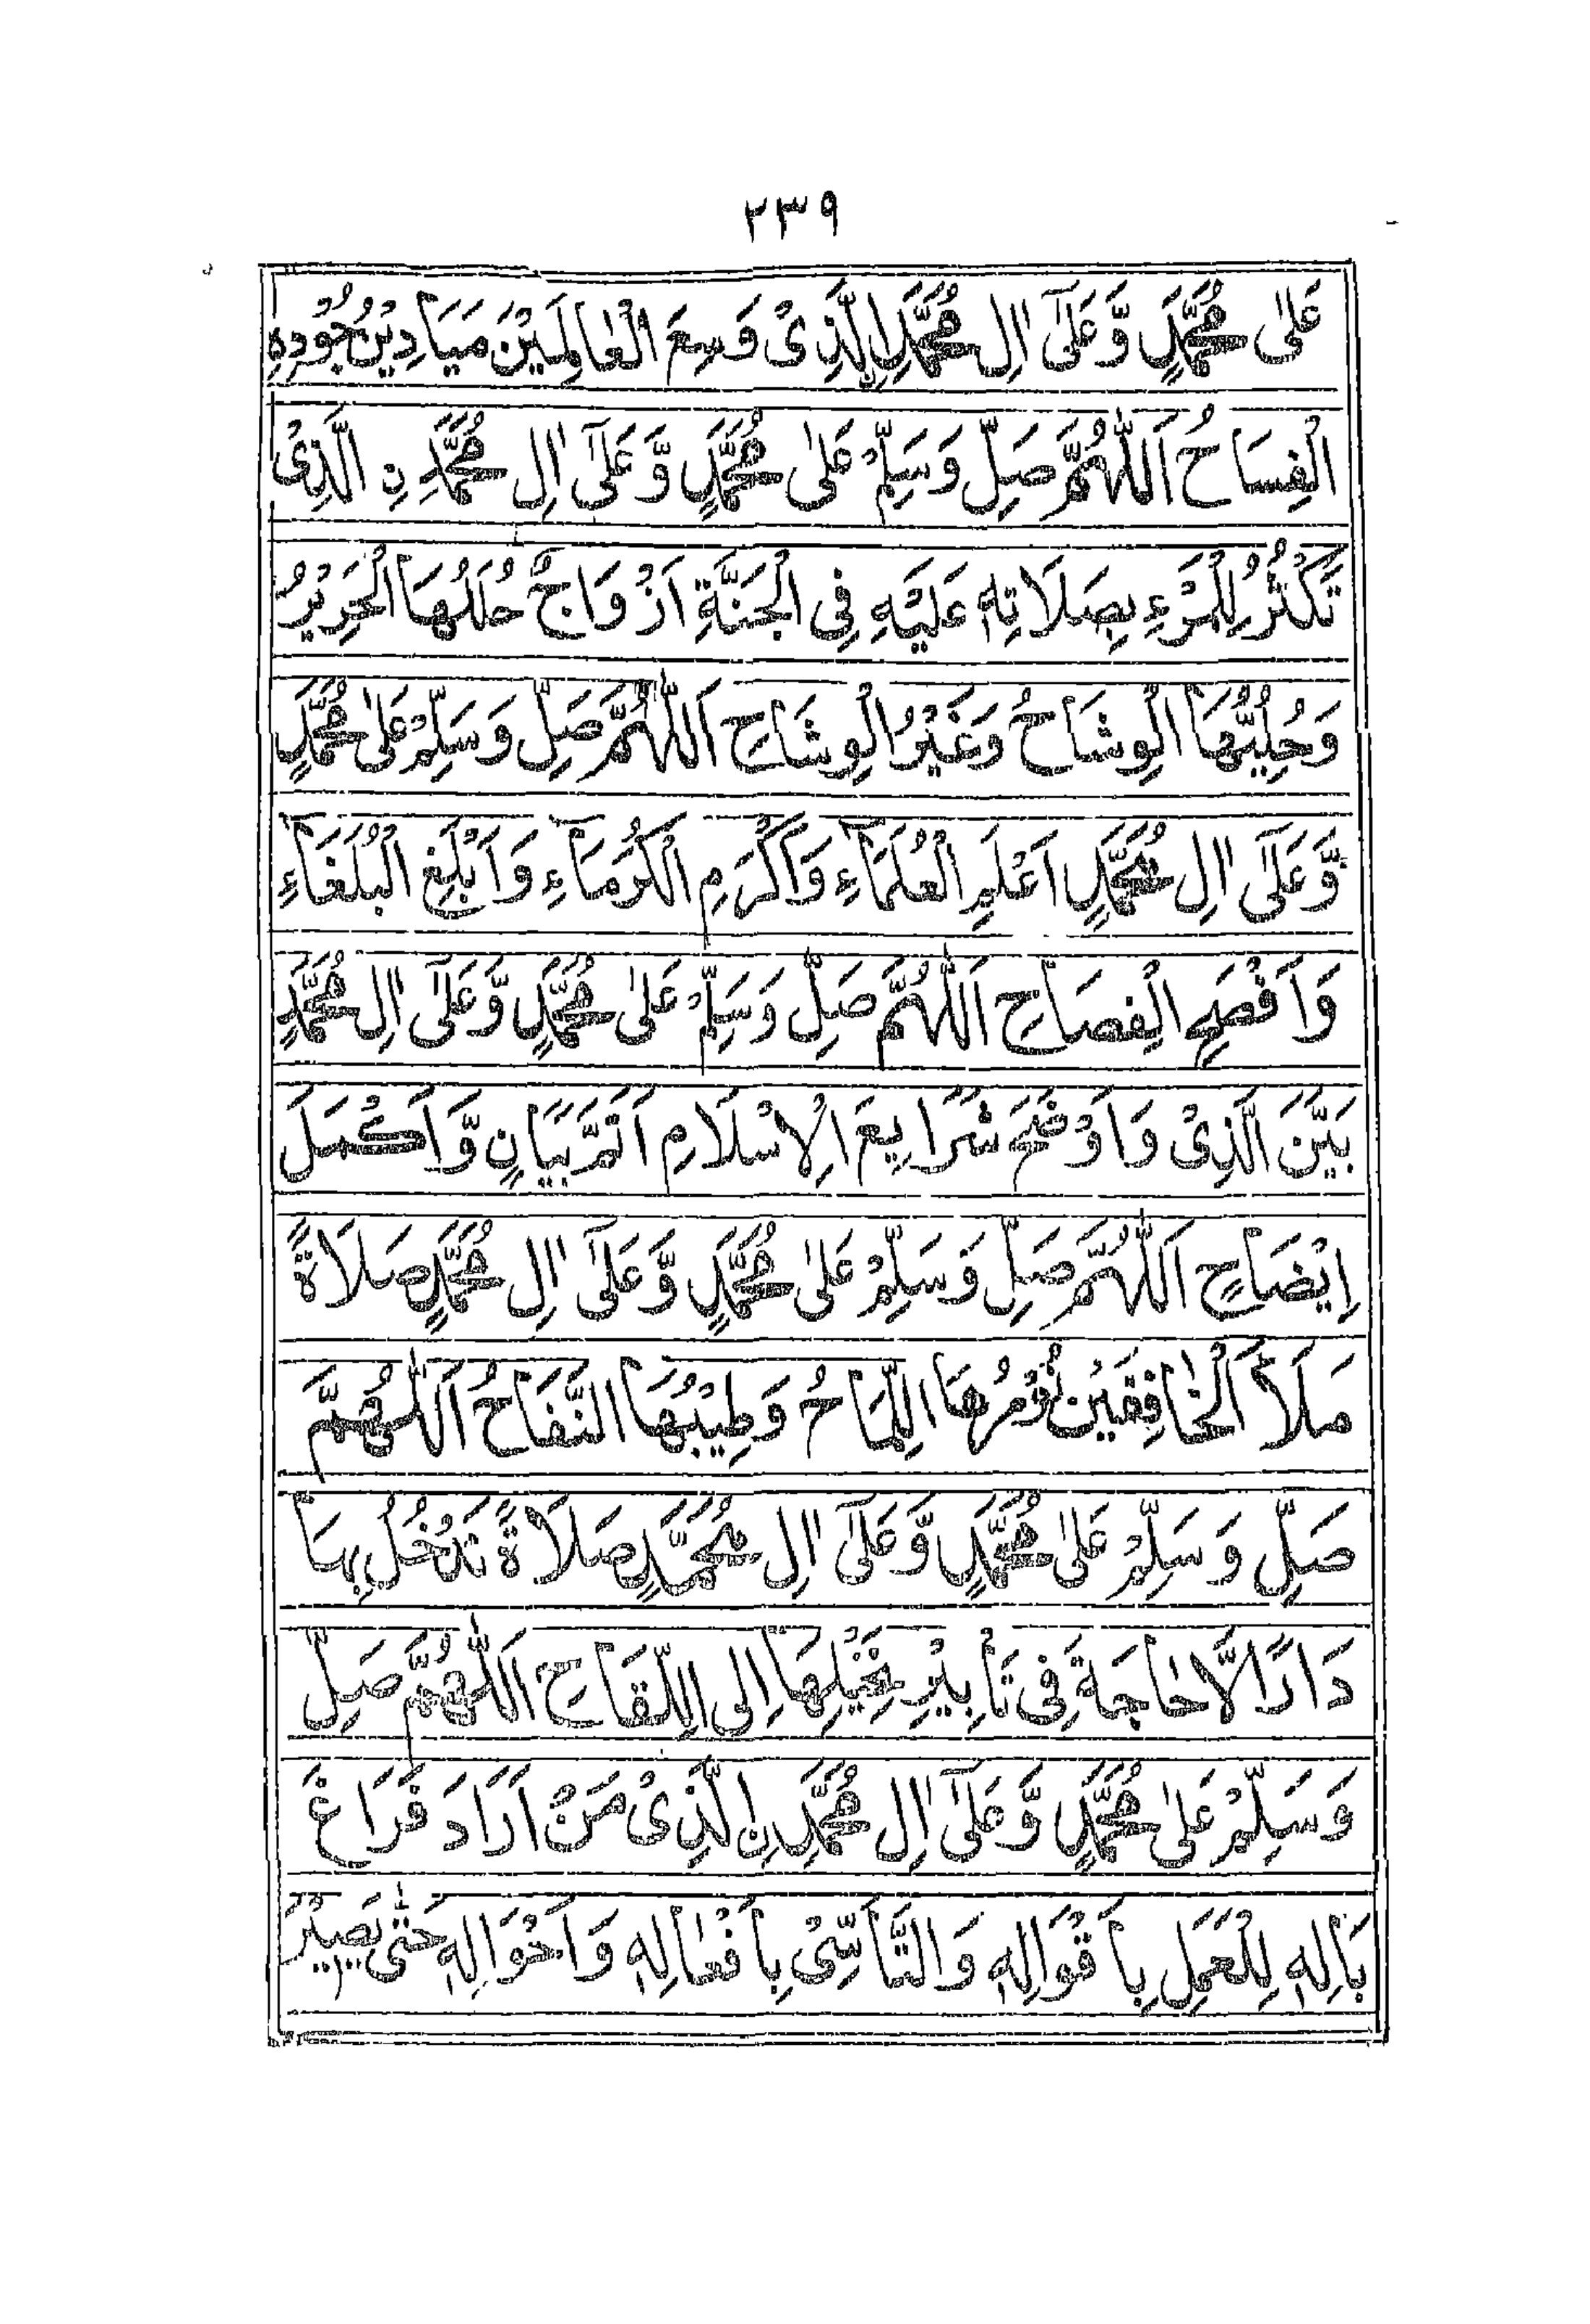 ٢٣٩
عَلٰى مُحَمَّدٍ وَّعَلٰٓى اٰلِ مُحَمَّدِ اِلَّذِىْ وَسِعَ الْعٰالَمِيْنَ مَيَادِيْنُ جُوْدِهِ
الْفِسَاحُ اَللّٰهُمَّ صَلِّ وَسَلِّمْ عَلٰى مُحَمَّدٍ وَّعَلٰٓى اٰلِ مُحَمَّدِ نِ الَّذِىْ
تَكْثُرُ لِلْمَرْءِ بِصَلَاتِهٖ عَلَيْهِ فِى الْجَنَّةِ اَزْوَاجٌ حُلَلُهَا الْحَرِيْرُ
وَحُلِيُّهَا الْوِشَاحُ وَغَيْرُ الْوِشَاحِ اَللّٰهُمَّ صَلِّ وَسَلِّمْ عَلٰى مُحَمَّدٍ
وَّعَلٰٓى اٰلِ مُحَمَّدٍ اَعْلَمِ الْعُلَمَآءِ وَاَكْرَمِ الْكُرَمَآءِ وَاَبْلَغِ الْبُلَغَآءِ
وَاَفْصَحِ الْفِصَاحِ اَللّٰهُمَّ صَلِّ وَسَلِّمْ عَلٰى مُحَمَّدٍ وَّعَلٰٓى اٰلِ مُحَمَّدٍ
بَيَّنَ الَّذِىْ وَاَوْضَحَ شَرَايِعَ الْاِسْلَامِ اَتَمَّ بَيَانٍ وَّاَكْمَلَ
اِيْضَاحٍ اَللّٰهُمَّ صَلِّ وَسَلِّمْ عَلٰى مُحَمَّدٍ وَّعَلٰٓى اٰلِ مُحَمَّدٍ صَلَاةً
مَلَأَ الْخٰافِقَيْنِ نُوْرُهَا اللَّمَاحُ وَطِيْبُهَا النَّفَاحُ اَللّٰهُمَّ
صَلِّ وَسَلِّمْ عَلٰى مُحَمَّدٍ وَّعَلٰٓى اٰلِ مُحَمَّدٍ صَلَاةً تَدْخُلُ بِهَا
دَارًا لَّا حٰاجَةَ فِى تَأْبِيْرِ نَخْيْلِهَا اِلى اللِّقَاحِ اَللّٰهُمَّ صَلِّ
وَسَلِّمْ عَلٰى مُحَمَّدٍ وَّعَلٰٓى اٰلِ مُحَمَّدِنِ الَّذِىْ مَنْ اَرَادَ فَرَاغَ
بَالِهٖ لِلْعَمَلِ بِأَقْوَالِهٖ وَالتَّأَسِّىْ بِأَفْعٰالِهٖ وَاَحْوَالِهٖ حَتّٰى يَصِيْرَ